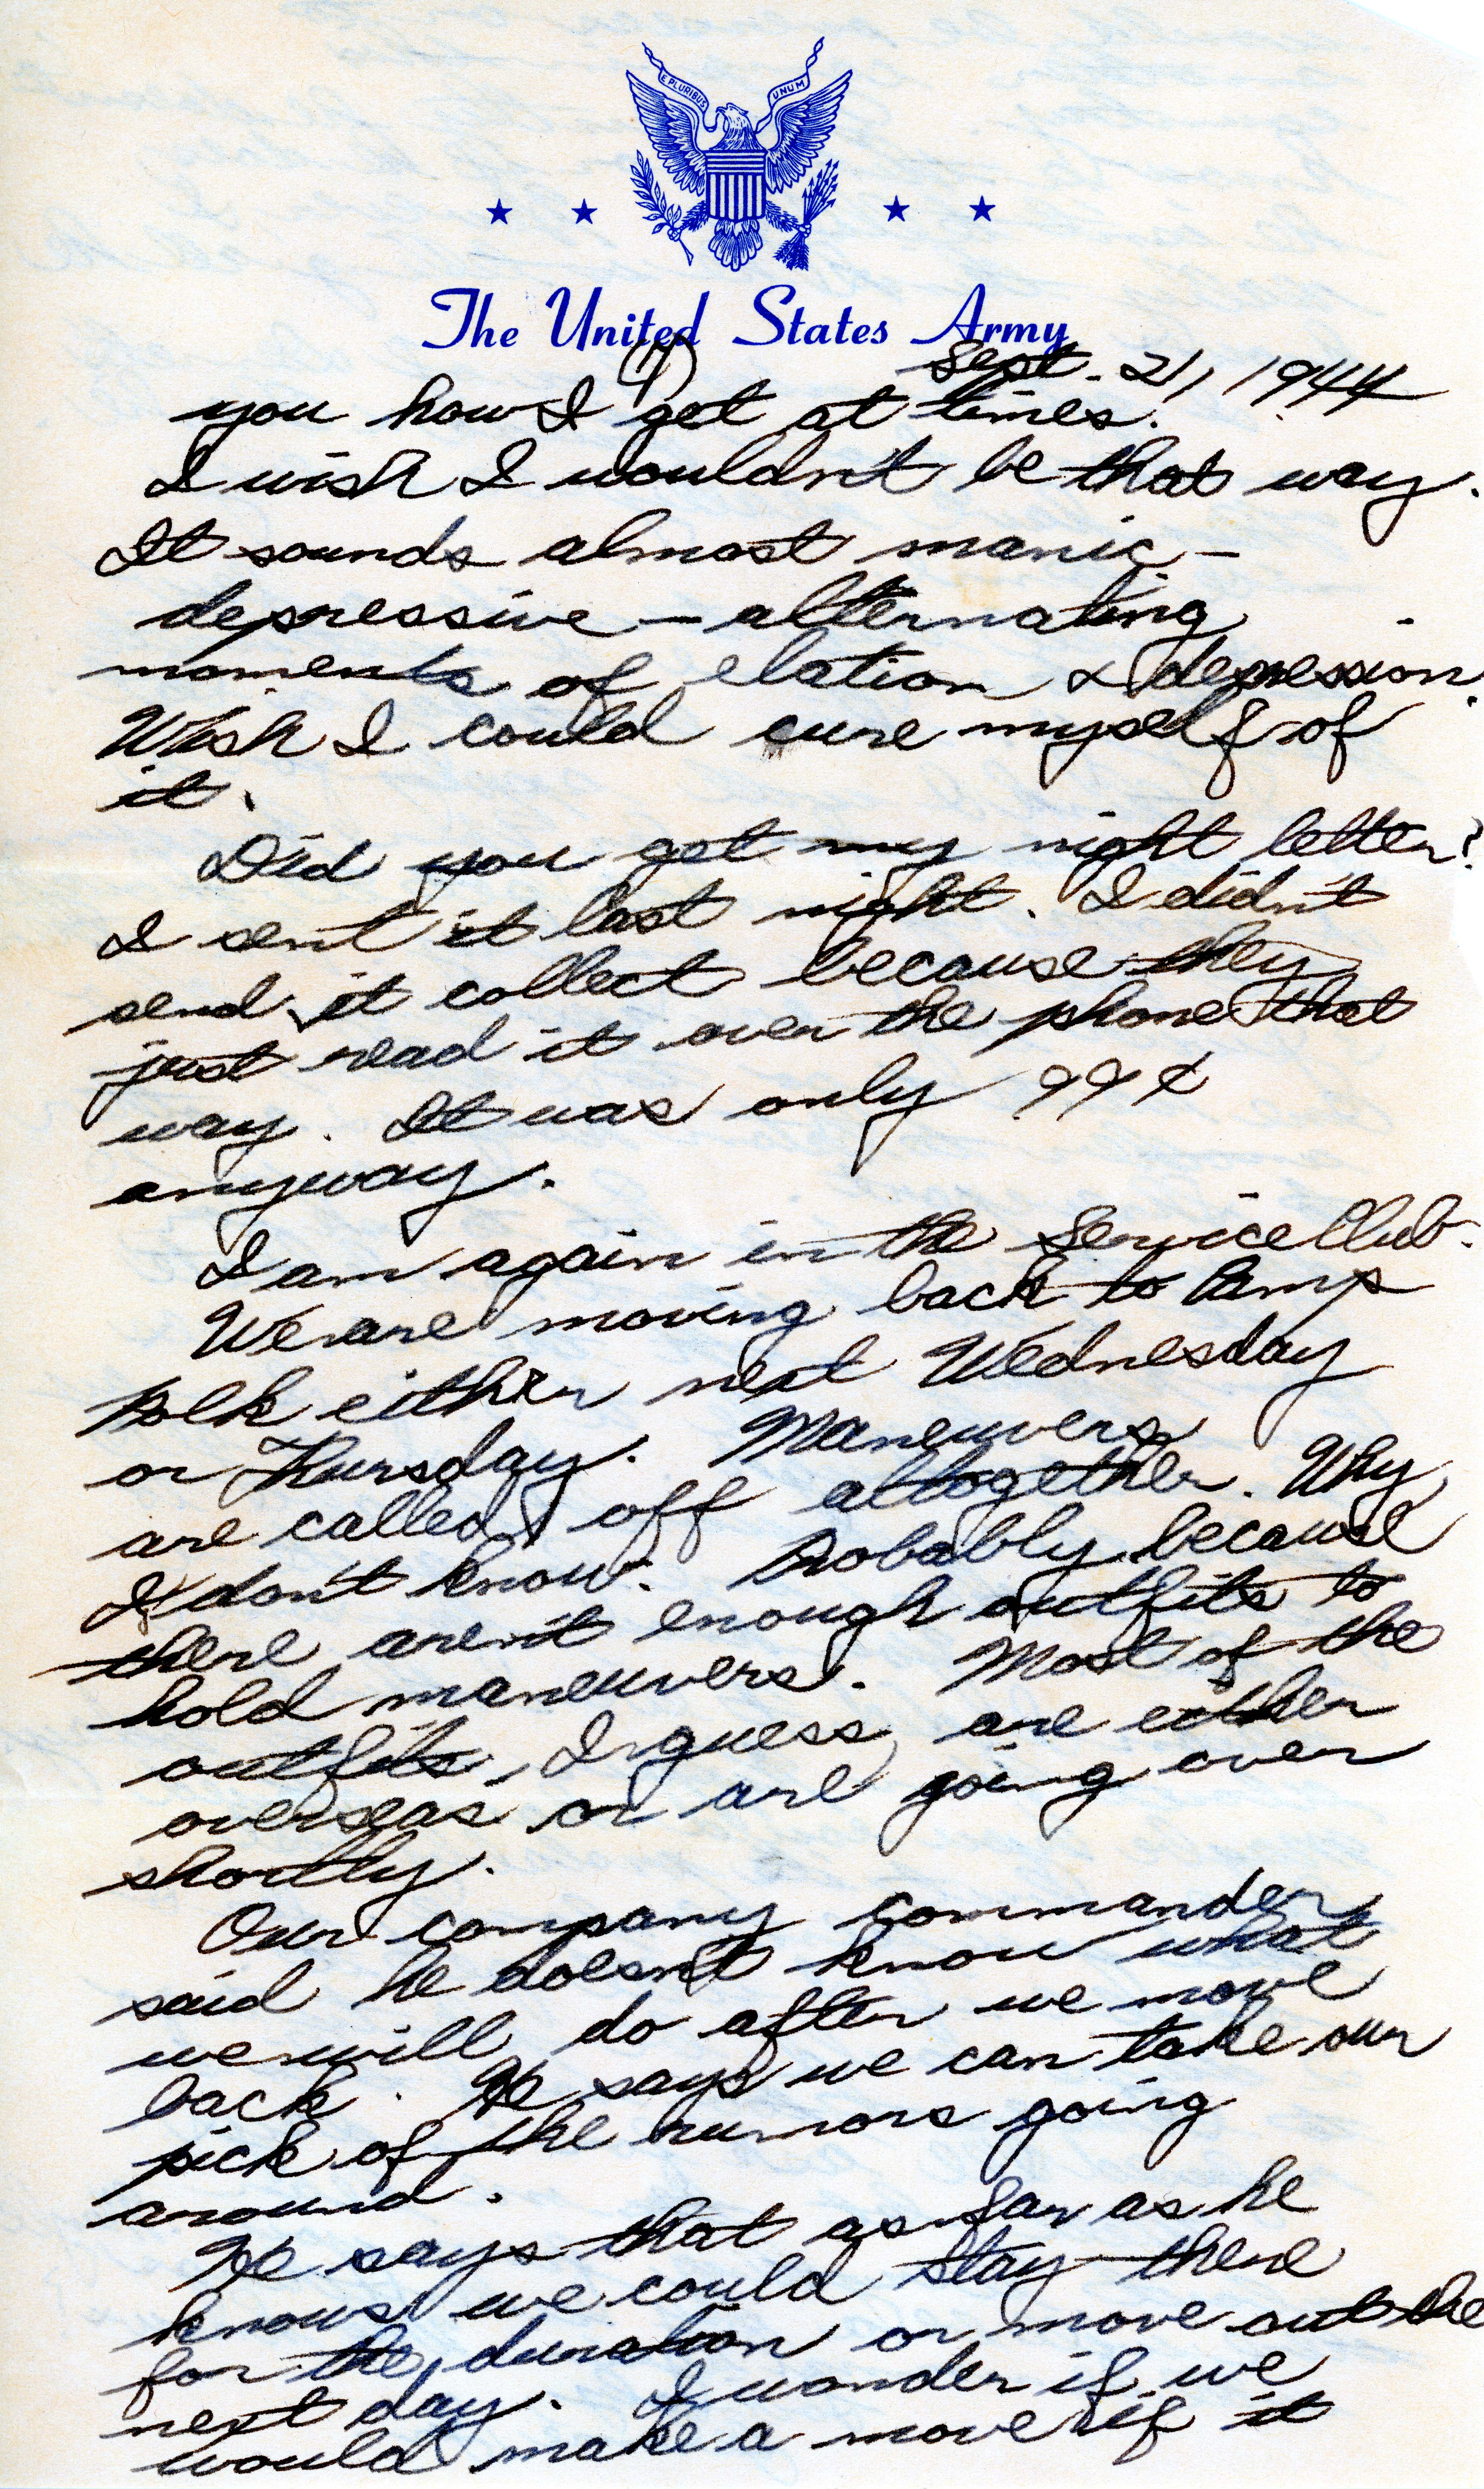 E PLURIBUS UNUM
The United States Army
(1)
Sept. 21, 1944
you how I get at times.
I wish I wouldn't be that way.
It sounds almost manic-
depressive — alternating
moments of elation & depression.
Wish I could cure myself of
it.
Did you get my night letter?
I sent it last night. I didn't
send it collect because they
just read it over the phone that
way. It was only 99¢
anyway.
I am again in the Service Club.
We are moving back to Camp
Polk either next Wednesday
or Thursday. Maneuvers
are called off altogether. Why
I don't know. Probably because
there aren't enough outfits to
hold maneuvers. Most of the
outfits, I guess, are either
overseas or are going over
shortly.
Our company commander
said he doesn't know what
we will do after we move
back. He says we can take our
pick of the rumors going
around.
He says that as far as he
knows we could stay there
for the duration or move out the
next day. I wonder if we
would make a move if it